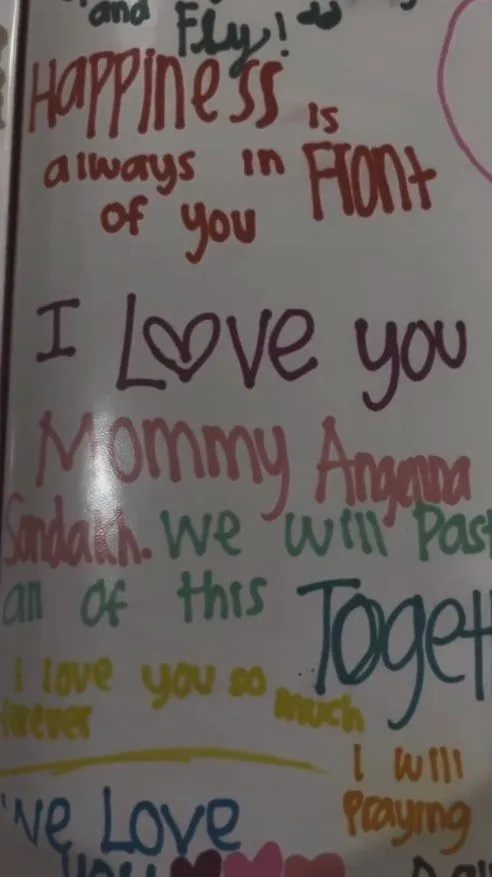 and
Fly!
Happiness is
always in Front
of you
I Love you
Mommy Angenna
Sondakh. We will Past
all of this Toget
I love you so much
forever
I will
Praying
We Love
you